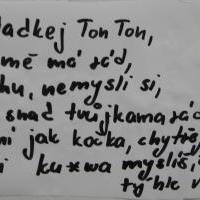 ladkej Ton Ton,
mě má rád,
hu, nemysli si,
snad tvůjkama rád
ní jak kočka, chytrá
i kurwa myslíš,
ty hle